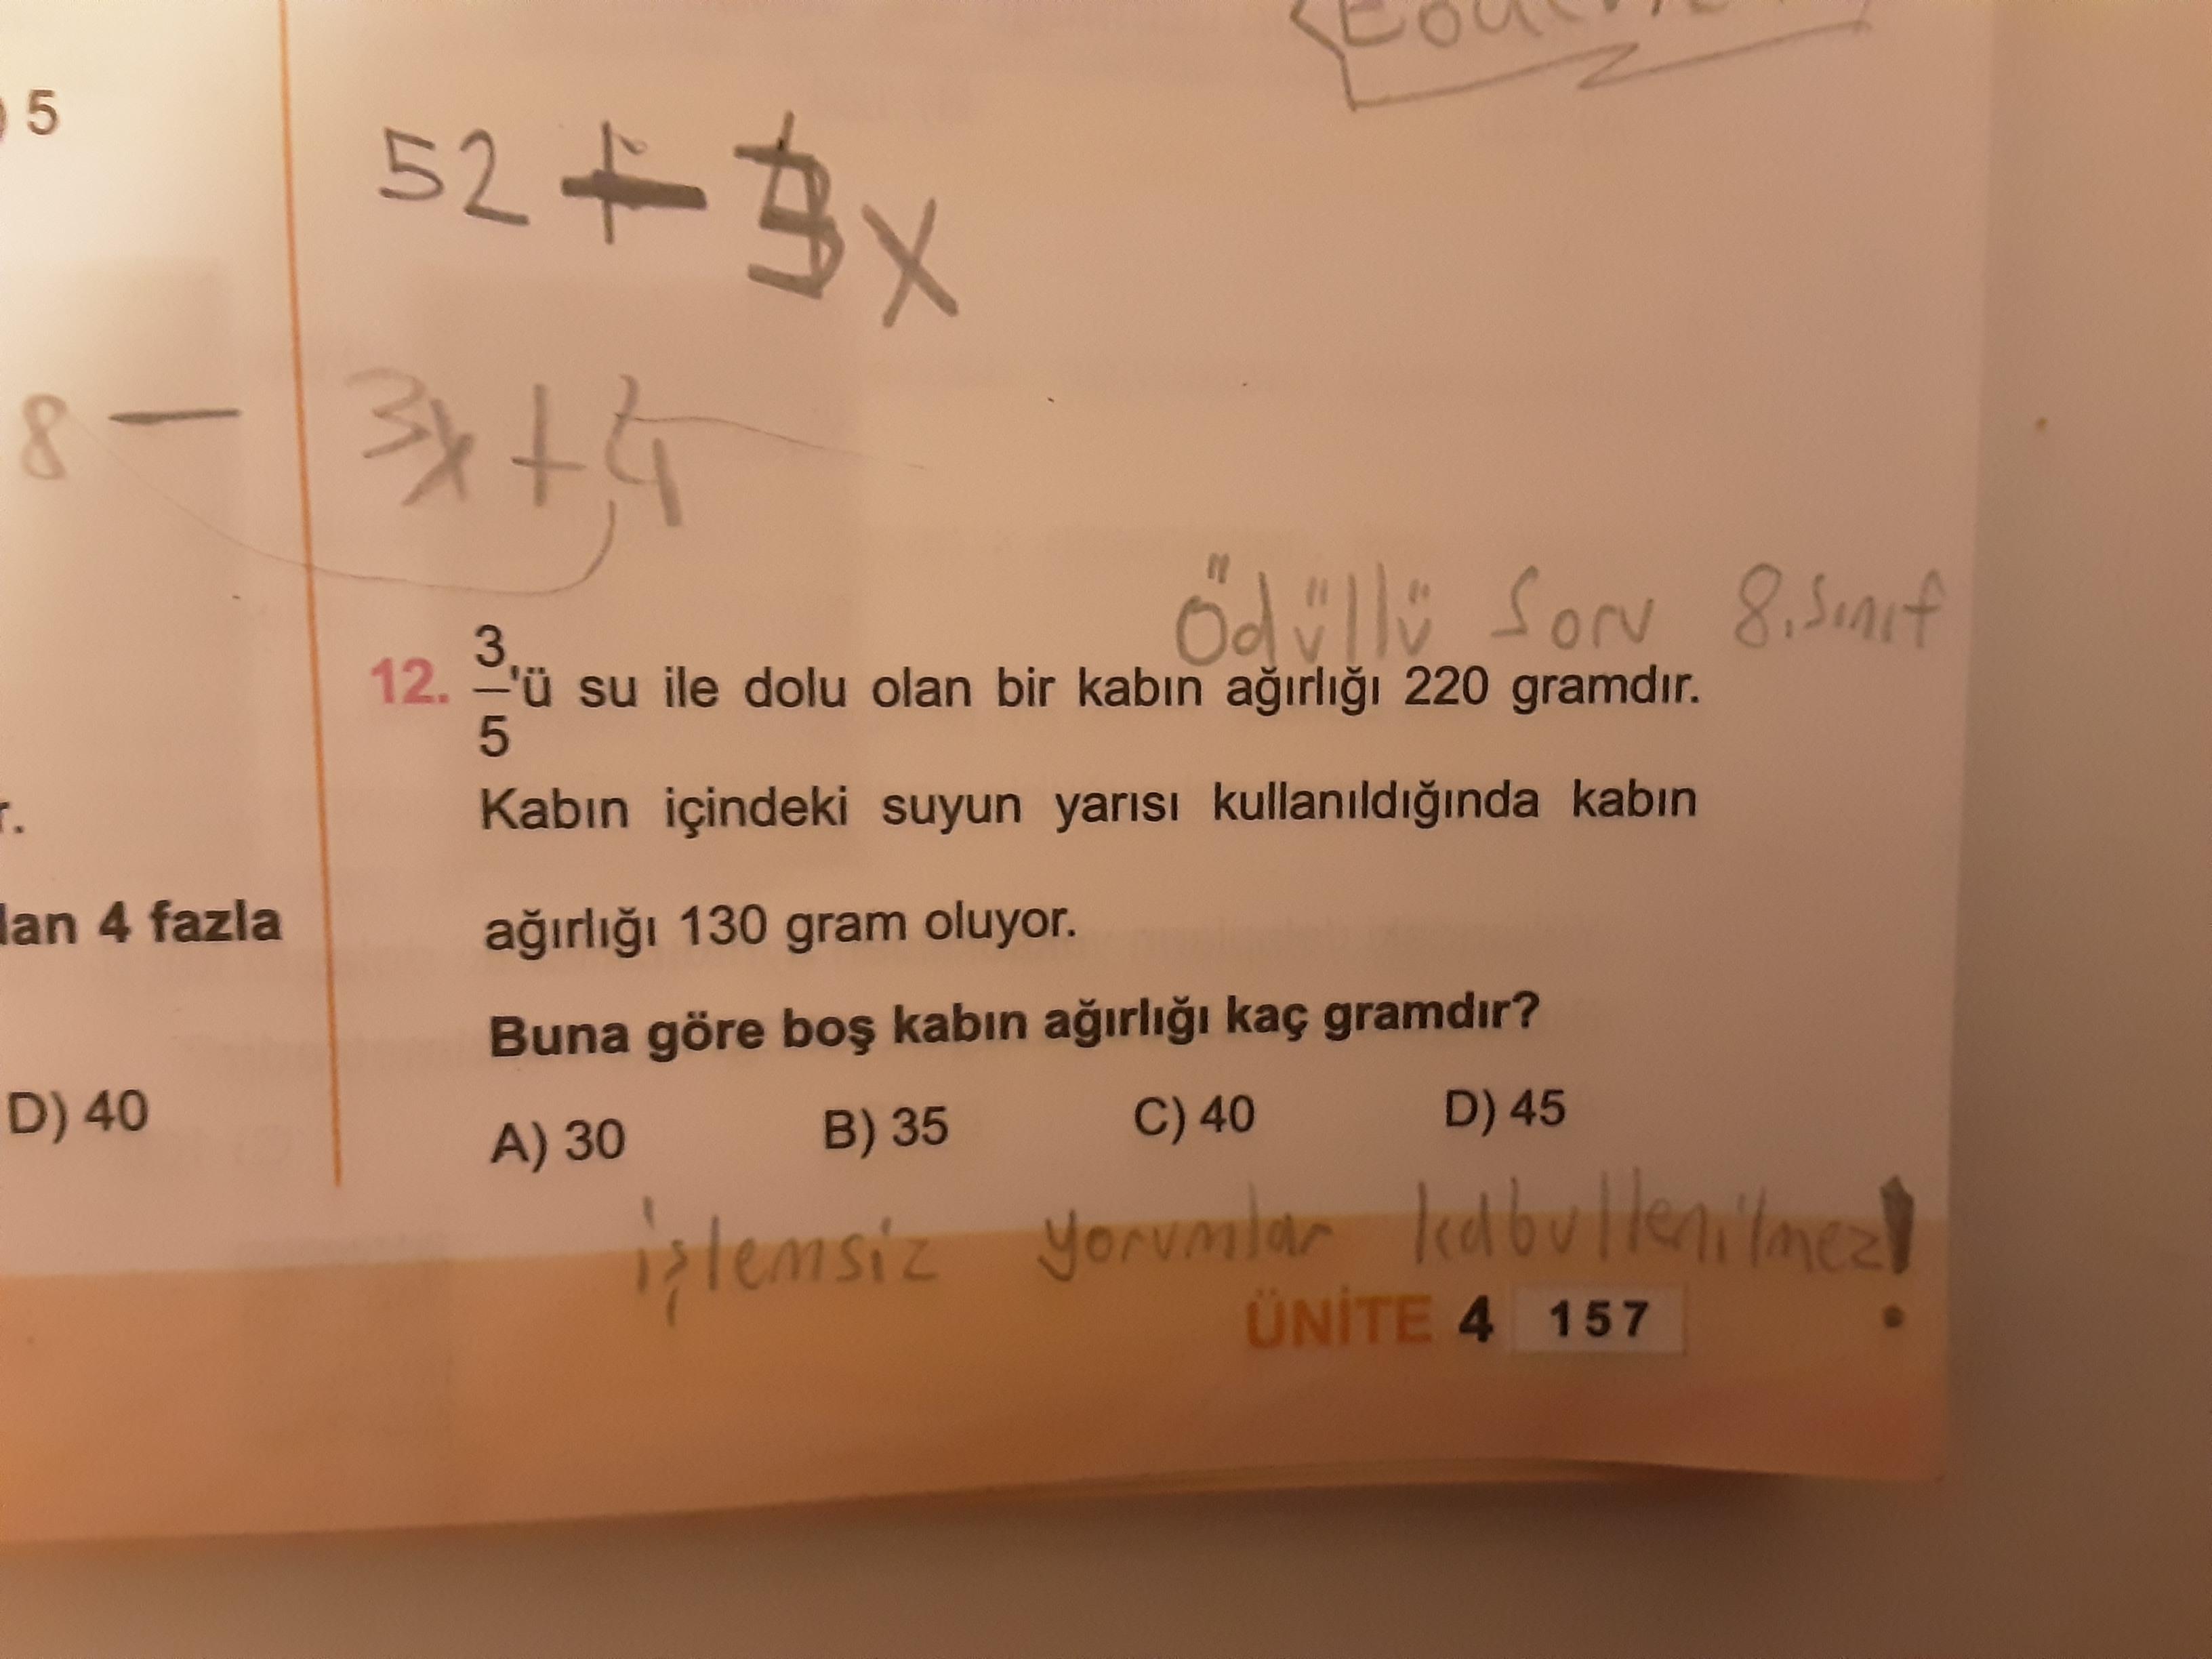 5
52 + 3x
8 — 3x+4
Ödüllü Soru 8.sınıf
12. 3/5'ü su ile dolu olan bir kabın ağırlığı 220 gramdır.
Kabın içindeki suyun yarısı kullanıldığında kabın
ağırlığı 130 gram oluyor.
Buna göre boş kabın ağırlığı kaç gramdır?
A) 30 B) 35 C) 40 D) 45
işlemsiz yorumlar kabullenilmez!
ÜNİTE 4 157
r.
4 fazla
D) 40